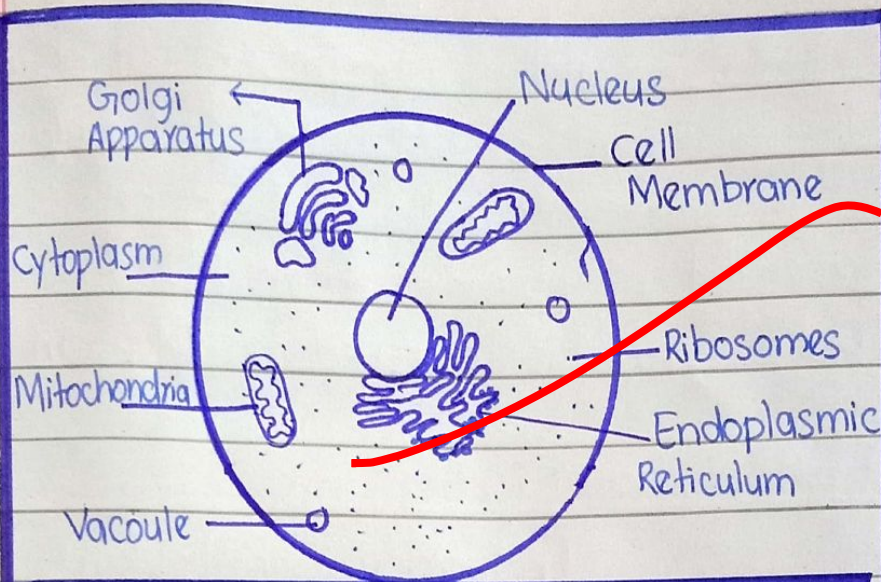 Nucleus
Golgi
Apparatus
Cell
Membrane
Cytoplasm
Ribosomes
Mitochondria
Endoplasmic
Reticulum
Vacoule